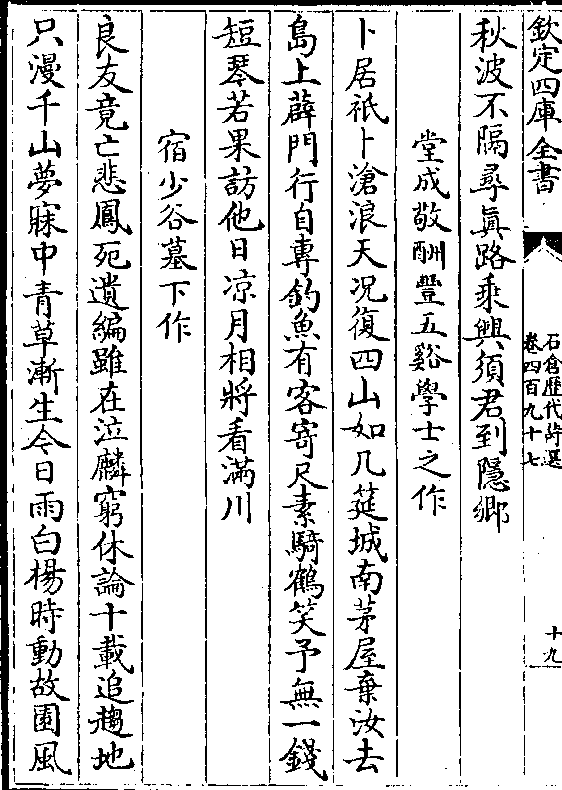 欽定四庫全書
石倉歴代詩選
卷四百九十七
十九
秋波不隔尋真路乘興須君到隱鄉
堂成敬酬豐五谿學士之作
卜居祇卜滄浪天况復四山如几筵城南茅屋棄汝去
島上薜門行自專釣魚有客寄尺素騎鶴笑予無一錢
短琴若果訪他日凉月相將看滿川
宿少谷墓下作
良友竟亡悲鳳死遺編雖在泣麟窮休論十載追趨地
只漫千山夢寐中青草漸生今日雨白楊時動故園風